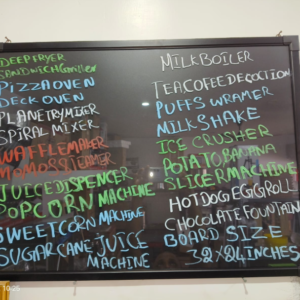 DEEPFRYER
SANDWICHGriller
PIZZAOVEN
DECK OVEN
PLANETRYMIXER
SPIRAL MIXER
WAFFLEMAKER
MOMOSSTEAMER
JUICEDISPENCER
POPCORN MACHINE
SWEETCORN MACHINE
SUGARCANE JUICE
MACHINE
MILKBOILER
TEACOFEEDECOCTION
PUFFS WRAMER
MILKSHAKE
ICE CRUSHER
POTATOBANANA
SLICERMACHINE
HOTDOG EGGROLL
CHOCOLATE FOUNTAIN
BOARD SIZE
32X24INCHES